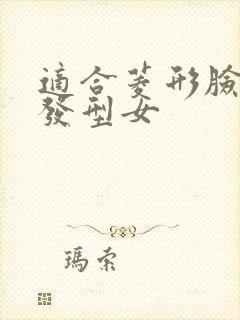 適合菱形臉
發型女
瑪索